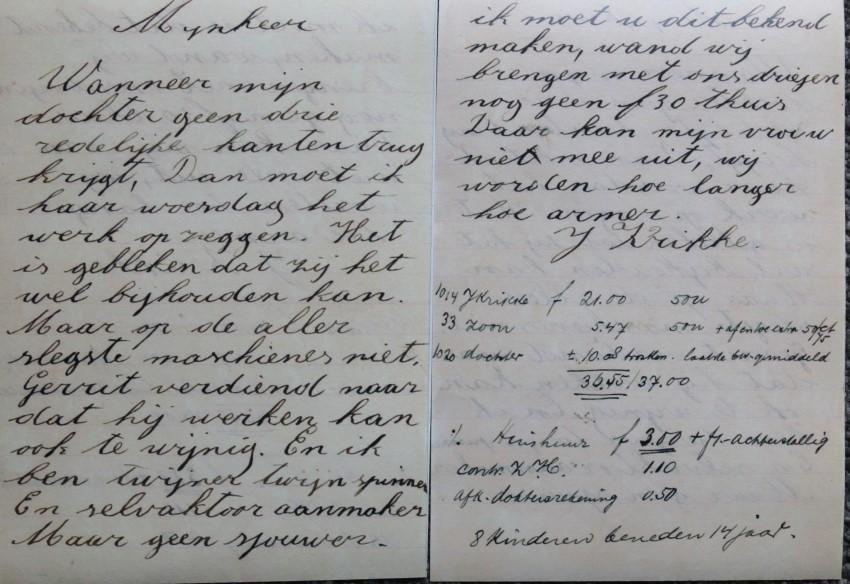 Mynheer
Wanneer mijn
dochter geen drie
redelijke kanten trug
krijgt, Dan moet ik
haar woensdag het
werk op zeggen. Het
is gebleken dat zij het
wel byhouden kan.
Maar op de aller
slegste maschienes niet.
Gerrit verdiend naar
dat hij werken kan
ook te wijnig. En ik
ben twijner twijn spinner
En selvaktoor aanmaker
Maar geen sjouwer.
ik moet u dit bekend
maken, wand wij
brengen met ons driejen
nog geen f 30 thuis
Daar kan mijn vrouw
niet mee uit, wij
worden hoe langer
hoe armer.
J Krikke.
1014 J Krikke f 21.00 50u
33 zoon 5.47 50u + af en toe extra
1020 dochter ± 10.08 gemiddeld
36.55/37.00
% Huishuur f 3.00 + f1.- achterstallig
contr. Z.H. 1.10
afk. doktersrekening 0.50
8 kinderen beneden 14 jaar.